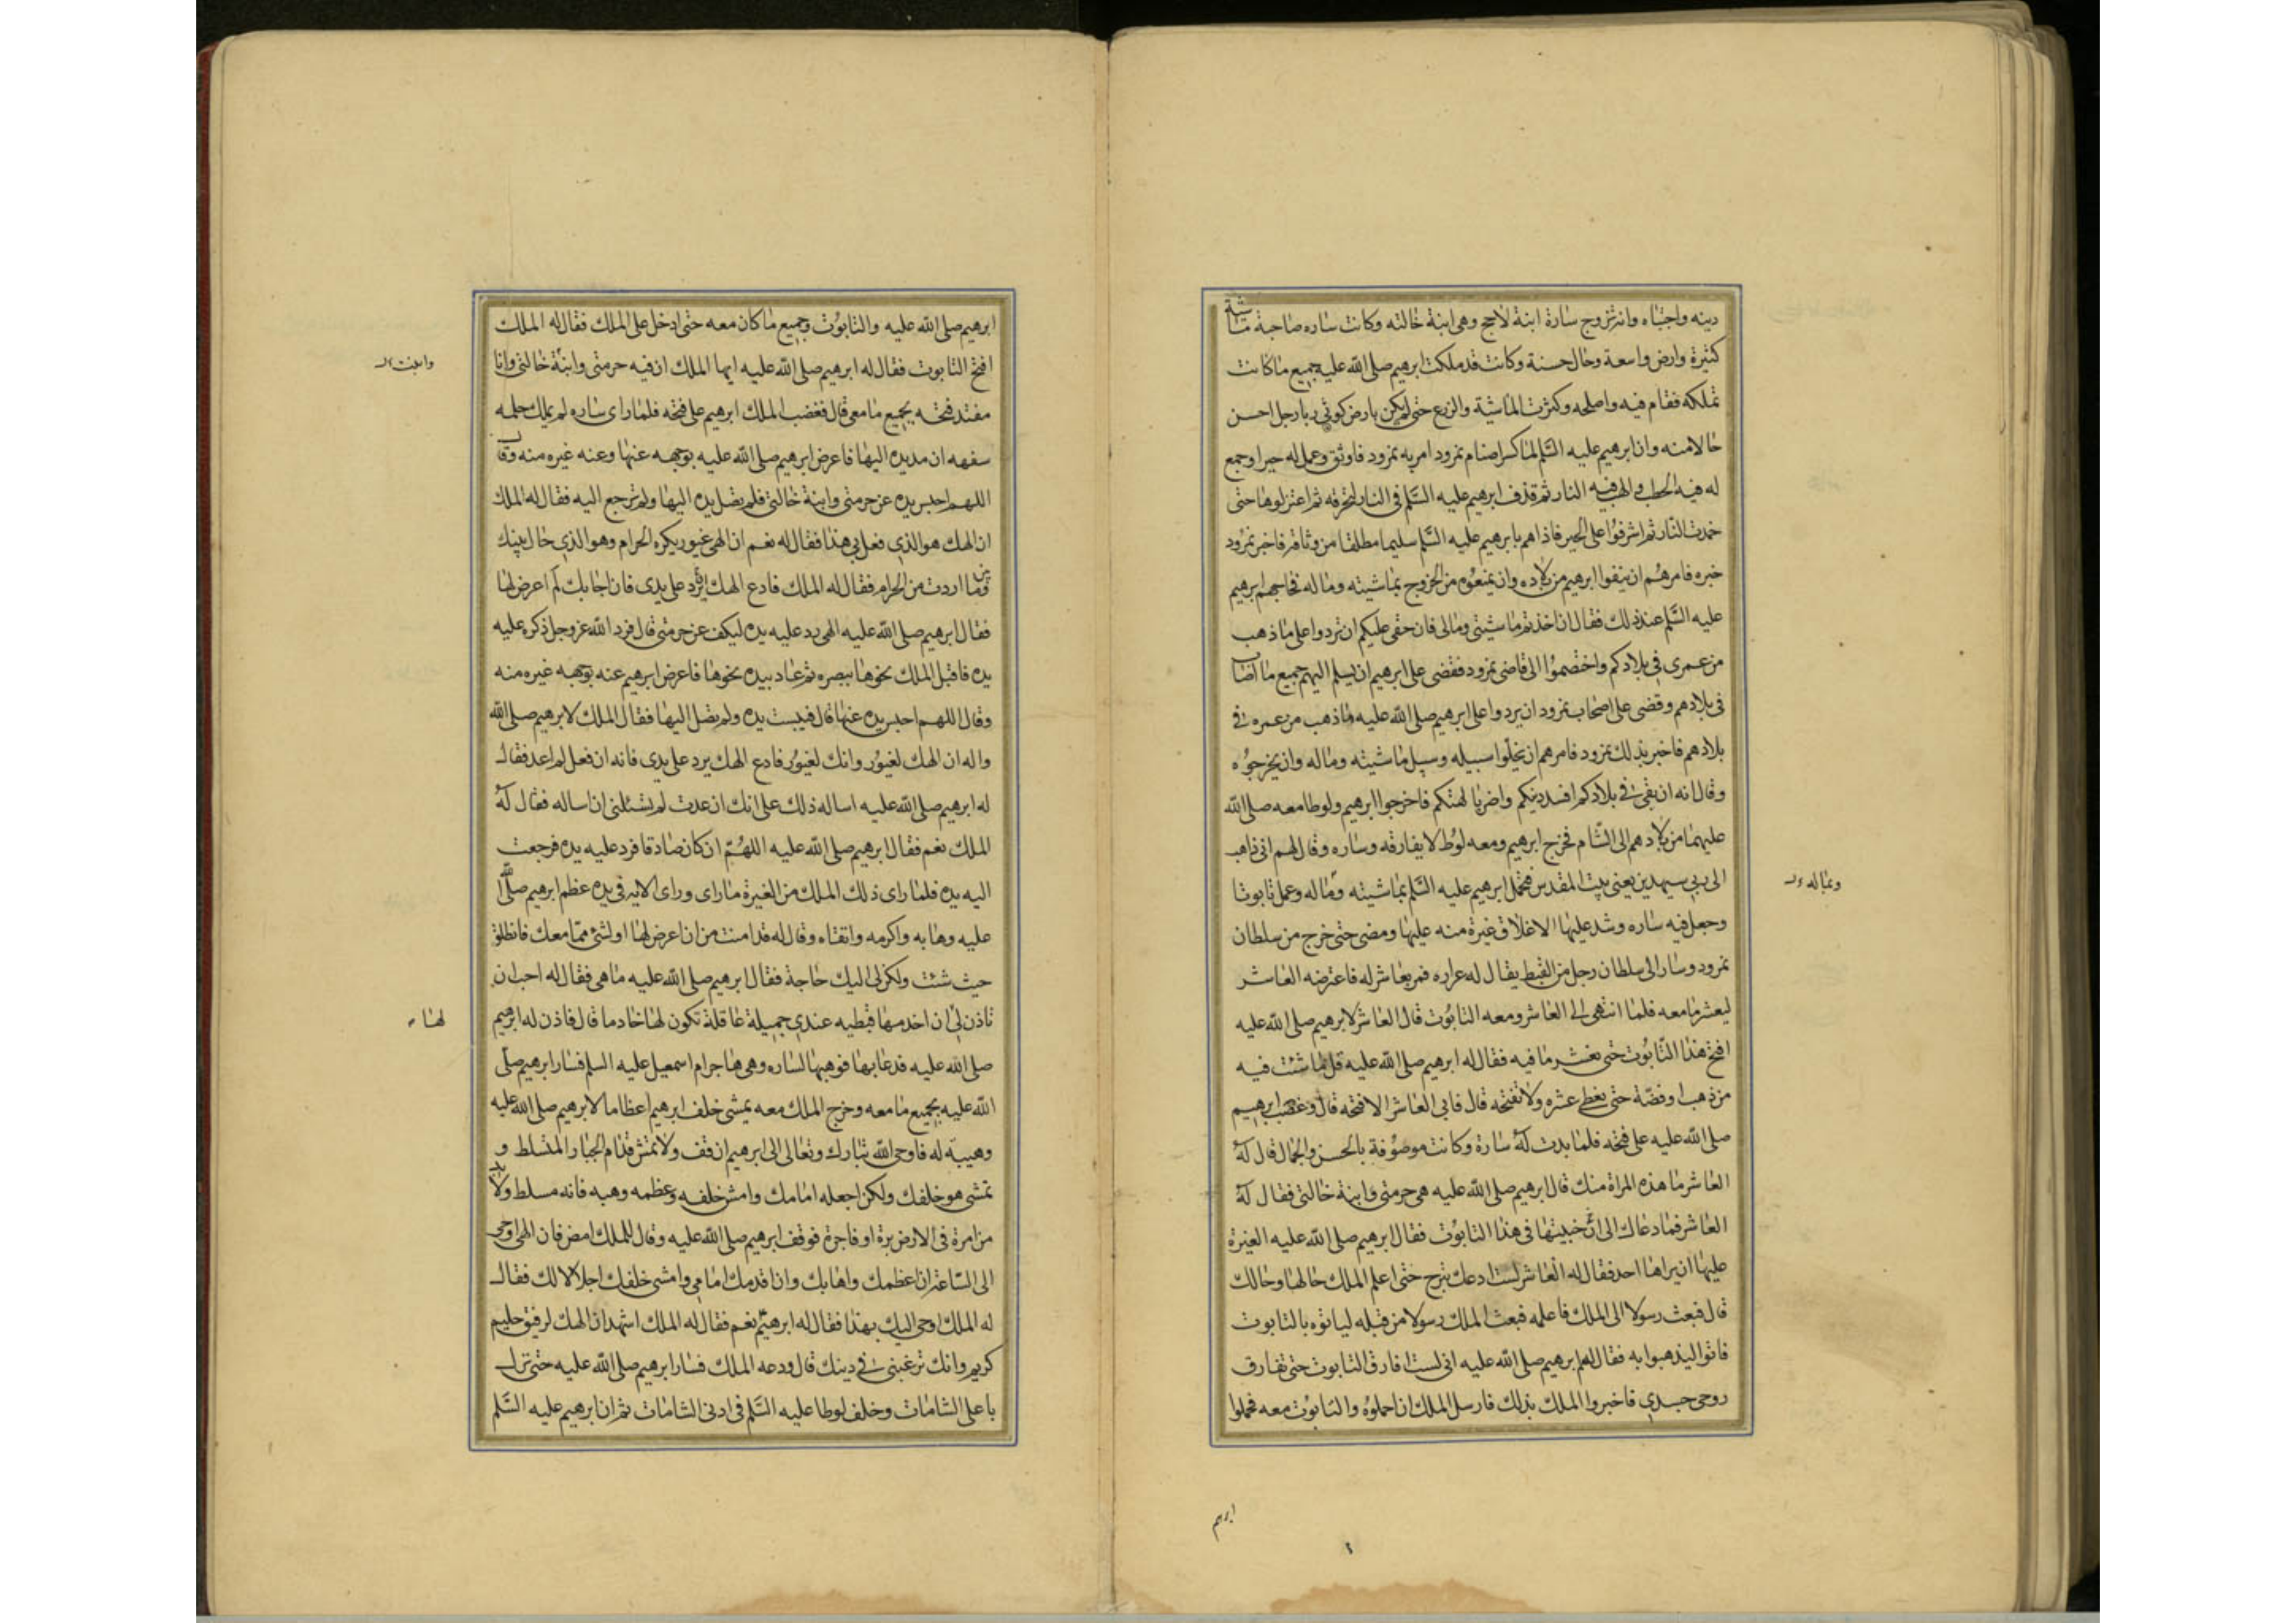 دينه واجتباه وانه تزوج سارة ابنة لاحج وهى ابنة خالته وكانت ساره صاحبة ماشية
كثيرة وارض واسعة وحال حسنة وكانت قد ملكت ابرهيم صلى الله عليه جميع ما كانت
تملكه فقام فيه واصلحه وكثرت الماشية والزرع حتى لم يكن بارض كوثى ربا رجل احسن
حالا منه وان ابرهيم عليه السلم لما كسر اصنام نمرود امر به نمرود فاوثق وعمل له حيرا وجمع
له فيه الحطب والهب فيه النار ثم قذف ابرهيم عليه السلم فى النار لتحرقه ثم اعتزلوها حتى
خمدت النار ثم اشرفوا على الحير فاذا هم بابرهيم عليه السلم سليما مطلقا من وثاقه فاخبر نمرود
خبره فامرهم ان ينفوا ابرهيم من بلاده وان يمنعوه من الخروج بماشيته وماله فحاجهم ابرهيم
عليه السلم عند ذلك فقال ان اخذتم ماشيتى ومالى فان حقى عليكم ان تردوا على ما ذهب
من عمرى فى بلادكم واختصموا الى قاضى نمرود فقضى على ابرهيم ان يسلم اليهم جميع ما اصاب
فى بلادهم وقضى على اصحاب نمرود ان يردوا على ابرهيم صلى الله عليه ما ذهب من عمره فى
بلادهم فاخبر بذلك نمرود فامرهم ان يخلوا سبيله وسبيل ماشيته وماله وان يخرجوه
وقال انه ان بقى فى بلادكم افسد دينكم واضر بالهتكم فاخرجوا ابرهيم ولوطا معه صلى الله
عليهما من بلادهم الى الشام فخرج ابرهيم ومعه لوط لا يفارقه وساره وقال لهم انى ذاهب
الى ربى سيهدين يعنى بيت المقدس فتحمل ابرهيم عليه السلم بماشيته وماله وعمل تابوتا
وجعل فيه ساره وشد عليها الاغلاق غيرة منه عليها ومضى حتى خرج من سلطان
نمرود وسار الى سلطان رجل من القبط يقال له عراره فمر بعاشر له فاعترضه العاشر
ليعشر ما معه فلما انتهى الى العاشر ومعه التابوت قال العاشر لابرهيم صلى الله عليه
افتح هذا التابوت حتى نعشر ما فيه فقال له ابرهيم صلى الله عليه قل ما شئت فيه
من ذهب او فضة حتى نعطى عشره ولا نفتحه قال فابى العاشر الا فتحه قال وغضب ابرهيم
صلى الله عليه على فتحه فلما بدت له سارة وكانت موصوفة بالحسن والجمال قال له
العاشر ما هذه المراة منك قال ابرهيم صلى الله عليه هى حرمتى وابنة خالتى فقال له
العاشر فما دعاك الى ان خبيتها فى هذا التابوت فقال ابرهيم صلى الله عليه الغيرة
عليها ان يراها احد فقال له العاشر لست ادعك تبرح حتى اعلم الملك حالها وحالك
قال فبعث رسولا الى الملك فاعلمه فبعث الملك رسولا من قبله لياتوه بالتابوت
فاتوا ليذهبوا به فقال لهم ابرهيم صلى الله عليه انى لست افارق التابوت حتى تفارق
روحى جسدى فاخبروا الملك بذلك فارسل الملك ان احملوه والتابوت معه فحملوا
وبماله
ابرهيم
ابرهيم صلى الله عليه والتابوت وجميع ما كان معه حتى ادخل على الملك فقال له الملك
افتح التابوت فقال له ابرهيم صلى الله عليه ايها الملك ان فيه حرمتى وابنة خالتى وانا
مفتد فتحه بجميع ما معى قال فغضب الملك ابرهيم على فتحه فلما راى ساره لم يملك حلمه
سفهه ان مد يده اليها فاعرض ابرهيم صلى الله عليه بوجهه عنها وعنه غيره منه وقال
اللهم احبس يده عن حرمتى وابنة خالتى فلم تصل يده اليها ولم ترجع اليه فقال له الملك
ان الهك هو الذى فعل بى هذا فقال له نعم ان الهى غيور يكره الحرام وهو الذى حال بينك
وبين ما اردت من الحرام فقال له الملك فادع الهك يرد على يدى فان اجابك لم اعرض لها
فقال ابرهيم صلى الله عليه الهى رد عليه يده ليكف عن حرمتى قال فرد الله عز وجل ذكره عليه
يده فاقبل الملك نحوها ببصره ثم عاد بيده نحوها فاعرض ابرهيم عنه بوجهه غيره منه
وقال اللهم احبس يده عنها قال فيبست يده ولم تصل اليها فقال الملك لابرهيم صلى الله
واله ان الهك لغيور وانك لغيور فادع الهك يرد على يدى فانه ان فعل لم اعد فقال
له ابرهيم صلى الله عليه اساله ذلك على انك ان عدت لم تسئلنى ان اساله فقال له
الملك نعم فقال ابرهيم صلى الله عليه اللهم ان كان صادقا فرد عليه يده فرجعت
اليه يده فلما راى ذلك الملك من الغيرة ما راى وراى الايه فى يده عظم ابرهيم صلى الله
عليه وهابه واكرمه واتقاه وقال له قد امنت من ان اعرض لها او لشئ مما معك فانطلق
حيث شئت ولكن لى اليك حاجة فقال ابرهيم صلى الله عليه ما هى فقال له احب ان
تاذن لى ان اخدمها قبطيه عندى جميلة عاقلة تكون لها خادما قال فاذن له ابرهيم
صلى الله عليه فدعا بها فوهبها لساره وهى هاجر ام اسمعيل عليه السلم فسار ابرهيم صلى
الله عليه بجميع ما معه وخرج الملك معه يمشى خلف ابرهيم اعظاما لابرهيم صلى الله عليه
وهيبة له فاوحى الله تبارك وتعالى الى ابرهيم ان قف ولا تمش قدام الجبار المتسلط و
تمشى هو خلفك ولكن اجعله امامك وامش خلفه وعظمه وهبه فانه مسلط ولا بد
من امرة فى الارض برة او فاجرة فوقف ابرهيم صلى الله عليه وقال للملك امض فان الهى اوحى
الى الساعة ان اعظمك واهابك وان اقدمك امامى وامشى خلفك اجلالا لك فقال
له الملك اوحى اليك بهذا فقال له ابرهيم نعم فقال له الملك اشهد ان الهك لرفيق حليم
كريم وانك ترغبنى فى دينك قال وودعه الملك فسار ابرهيم صلى الله عليه حتى نزل
باعلى الشامات وخلف لوطا عليه السلم فى ادنى الشامات ثم ان ابرهيم عليه السلم
لها